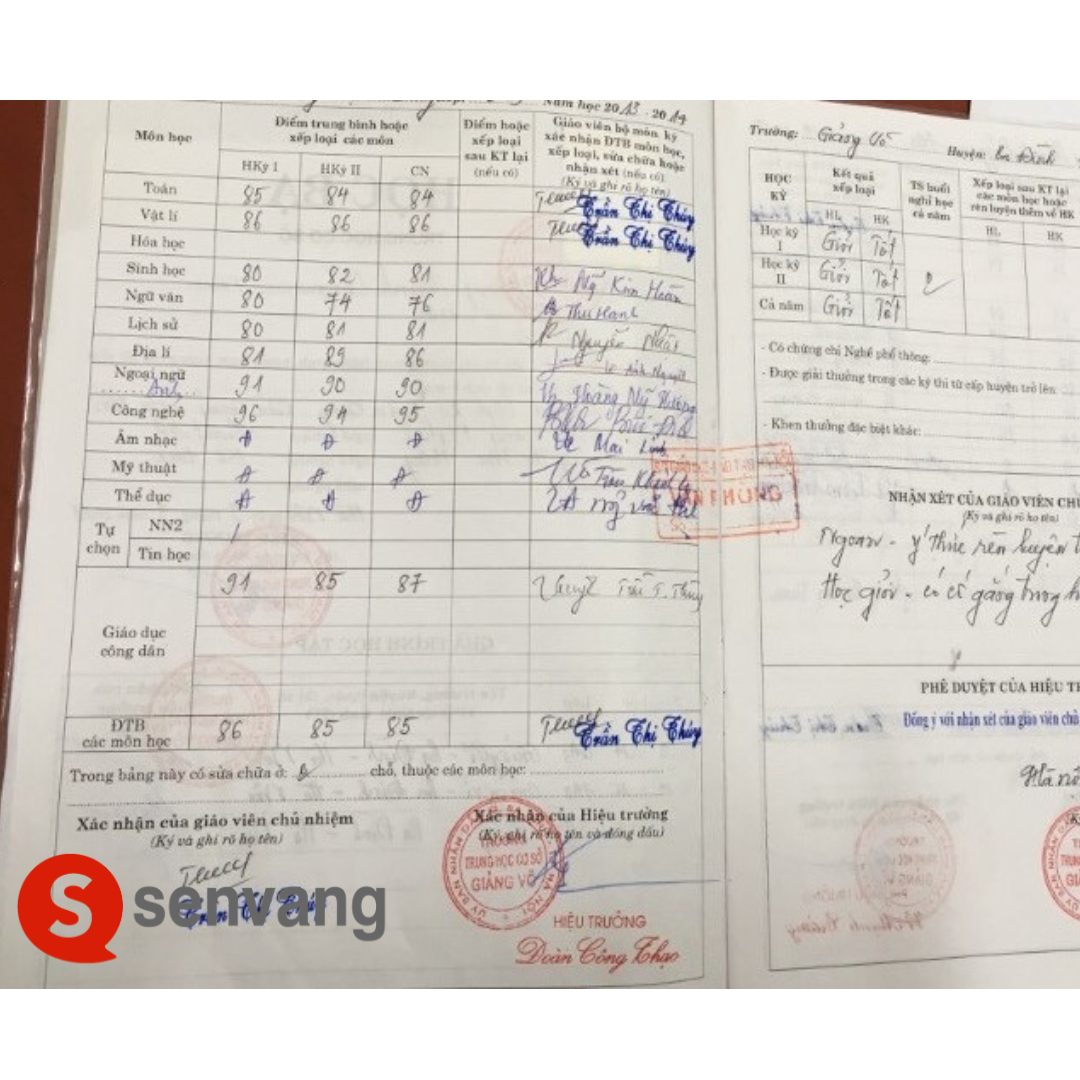 Năm học 2013 - 2014
Môn học
Điểm trung bình hoặc
xếp loại các môn
HKỳ I HKỳ II CN
Điểm hoặc
xếp loại
sau KT lại
(nếu có)
Giáo viên bộ môn ký
xác nhận ĐTB môn học,
xếp loại, sửa chữa hoặc
nhận xét (nếu có)
(Ký và ghi rõ họ tên)
Toán 85 84 84 Trần Thị Thúy
Vật lí 86 86 86 Trần Thị Thúy
Hóa học
Sinh học 80 82 81
Ngữ văn 80 74 76 Thu Hạnh
Lịch sử 80 81 81 Nguyễn
Địa lí 81 89 86
Ngoại ngữ 91 90 90
Anh
Công nghệ 96 94 95
Âm nhạc Đ Đ Đ Mai Linh
Mỹ thuật Đ Đ Đ
Thể dục Đ Đ Đ
Tự
chọn
NN2
Tin học
Giáo dục
công dân
91 85 87
ĐTB
các môn học
86 85 85 Trần Thị Thúy
Trong bảng này có sửa chữa ở: chỗ, thuộc các môn học:
Xác nhận của giáo viên chủ nhiệm
(Ký và ghi rõ họ tên)
Xác nhận của Hiệu trưởng
(Ký, ghi rõ họ tên và đóng dấu)
TRƯỜNG
TRUNG HỌC CƠ SỞ
GIẢNG VÕ
HIỆU TRƯỞNG
Đoàn Công Thạo
Trường: Giảng Võ Huyện: Ba Đình
HỌC
KỲ
Kết quả
xếp loại
HL HK
TS buổi
nghỉ học
cả năm
Xếp loại sau KT lại
các môn học hoặc
rèn luyện thêm về HK
HL HK
Học kỳ
I
Giỏi Tốt
Học kỳ
II
Giỏi Tốt
2
Cả năm Giỏi Tốt
- Có chứng chỉ Nghề phổ thông:
- Được giải thưởng trong các kỳ thi từ cấp huyện trở lên:
- Khen thưởng đặc biệt khác:
VĂN PHÒNG
NHẬN XÉT CỦA GIÁO VIÊN CH
(Ký và ghi rõ họ tên)
Ngoan - ý thức rèn luyện t
Học giỏi - có cố gắng trong h
PHÊ DUYỆT CỦA HIỆU T
Đồng ý với nhận xét của giáo viên chủ
Hà nộ
senvang